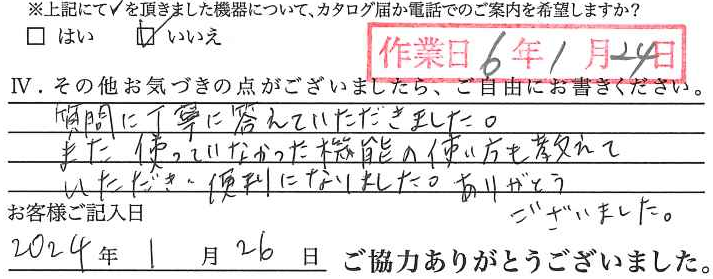 ※上記にて✓を頂きました機器について、カタログ届か電話でのご案内を希望しますか?
□ はい ☑ いいえ
作業日 6年 1月 24日
Ⅳ. その他お気づきの点がございましたら、ご自由にお書きください。
質問に丁寧に答えていただきました。
また 使っていなかった機能の使い方も教えて
いただき、便利になりました。ありがとう
ございました。
お客様ご記入日
2024 年 1 月 26 日 ご協力ありがとうございました。